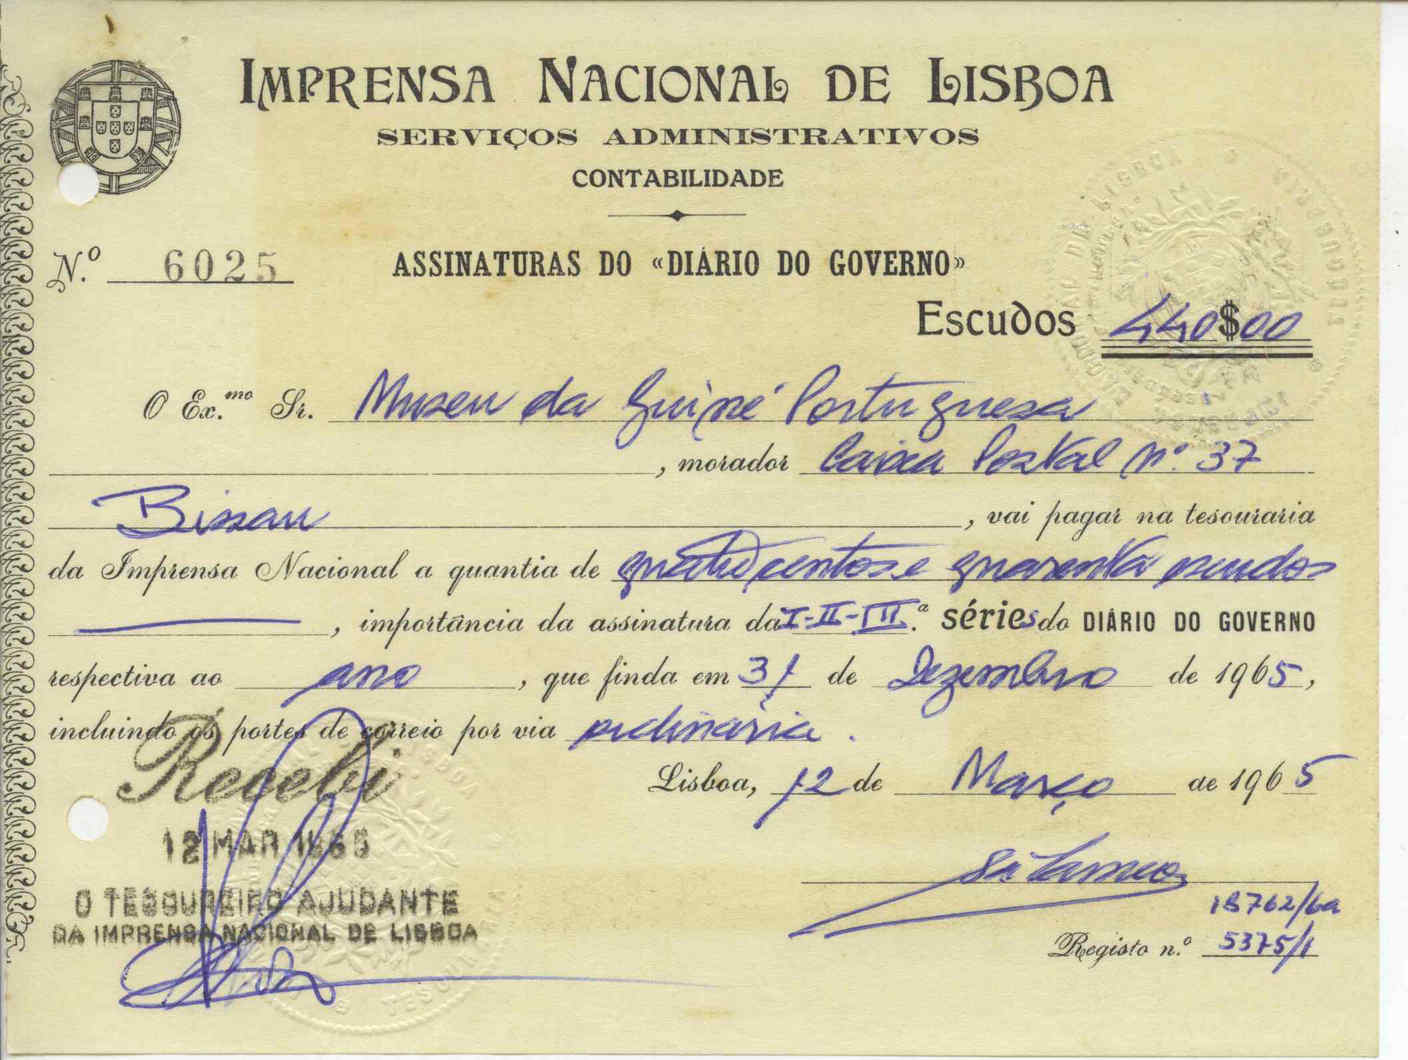 IMPRENSA NACIONAL DE LISBOA
SERVIÇOS ADMINISTRATIVOS
CONTABILIDADE
N.º 6025 ASSINATURAS DO «DIÁRIO DO GOVERNO»
Escudos 440$00
O Ex.mo Sr. Museu da Guiné Portuguesa
, morador Caixa Postal nº. 37
Bissau , vai pagar na tesouraria
da Imprensa Nacional a quantia de quatrocentos e quarenta escudos
, importância da assinatura da I-II-III.ª séries do DIÁRIO DO GOVERNO
respectiva ao ano , que finda em 31 de Dezembro de 1965,
incluindo os portes de correio por via ordinária.
Lisboa, 12 de Março de 1965
Recebi
12 MAR 1965
O TESOUREIRO AJUDANTE
DA IMPRENSA NACIONAL DE LISBOA
Registo n.º 5375/1